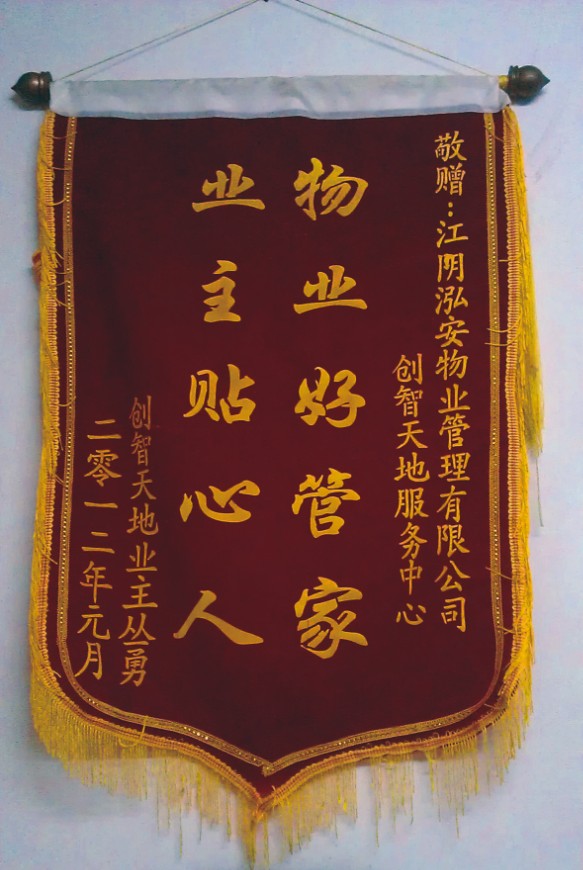 敬赠：江阴泓安物业管理有限公司
创智天地服务中心
物业好管家
业主贴心人
创智天地业主丛勇
二零一二年元月